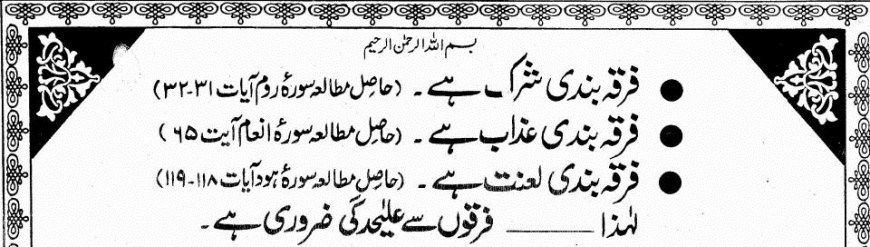 بسم اللہ الرحمٰن الرحیم
● فرقہ بندی شرک ہے۔ (حاصلِ مطالعہ سورۂ روم آیات ۳۱-۳۲)
● فرقہ بندی عذاب ہے۔ (حاصلِ مطالعہ سورۂ انعام آیت ۶۵)
● فرقہ بندی لعنت ہے۔ (حاصلِ مطالعہ سورۂ ہود آیات ۱۱۸-۱۱۹)
لہٰذا ______ فرقوں سے علیٰحدگی ضروری ہے۔